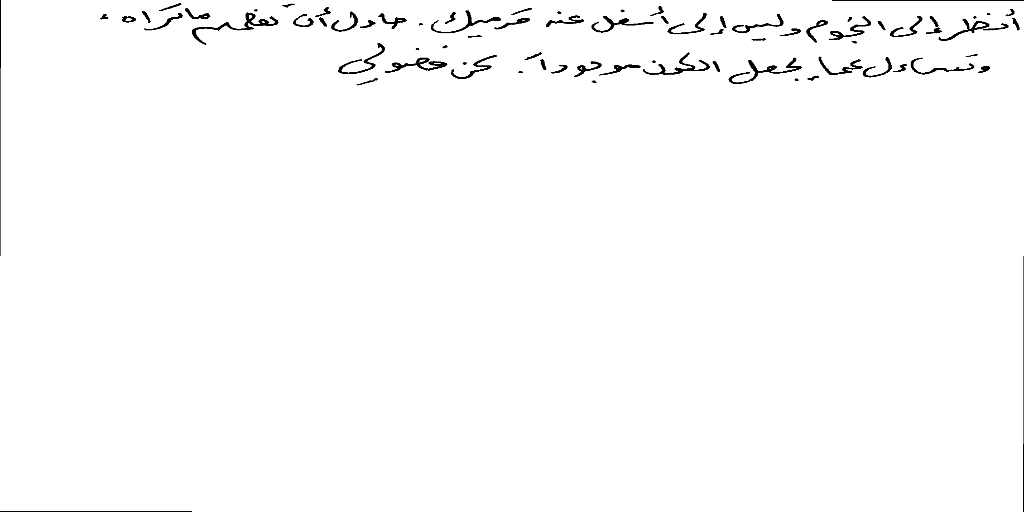 أنظر إلى النجوم وليس إلى أسفل عند قدميك. حاول أن تفهم ما تراه،
وتساءل عما يجعل الكون موجوداً. كن فضولي